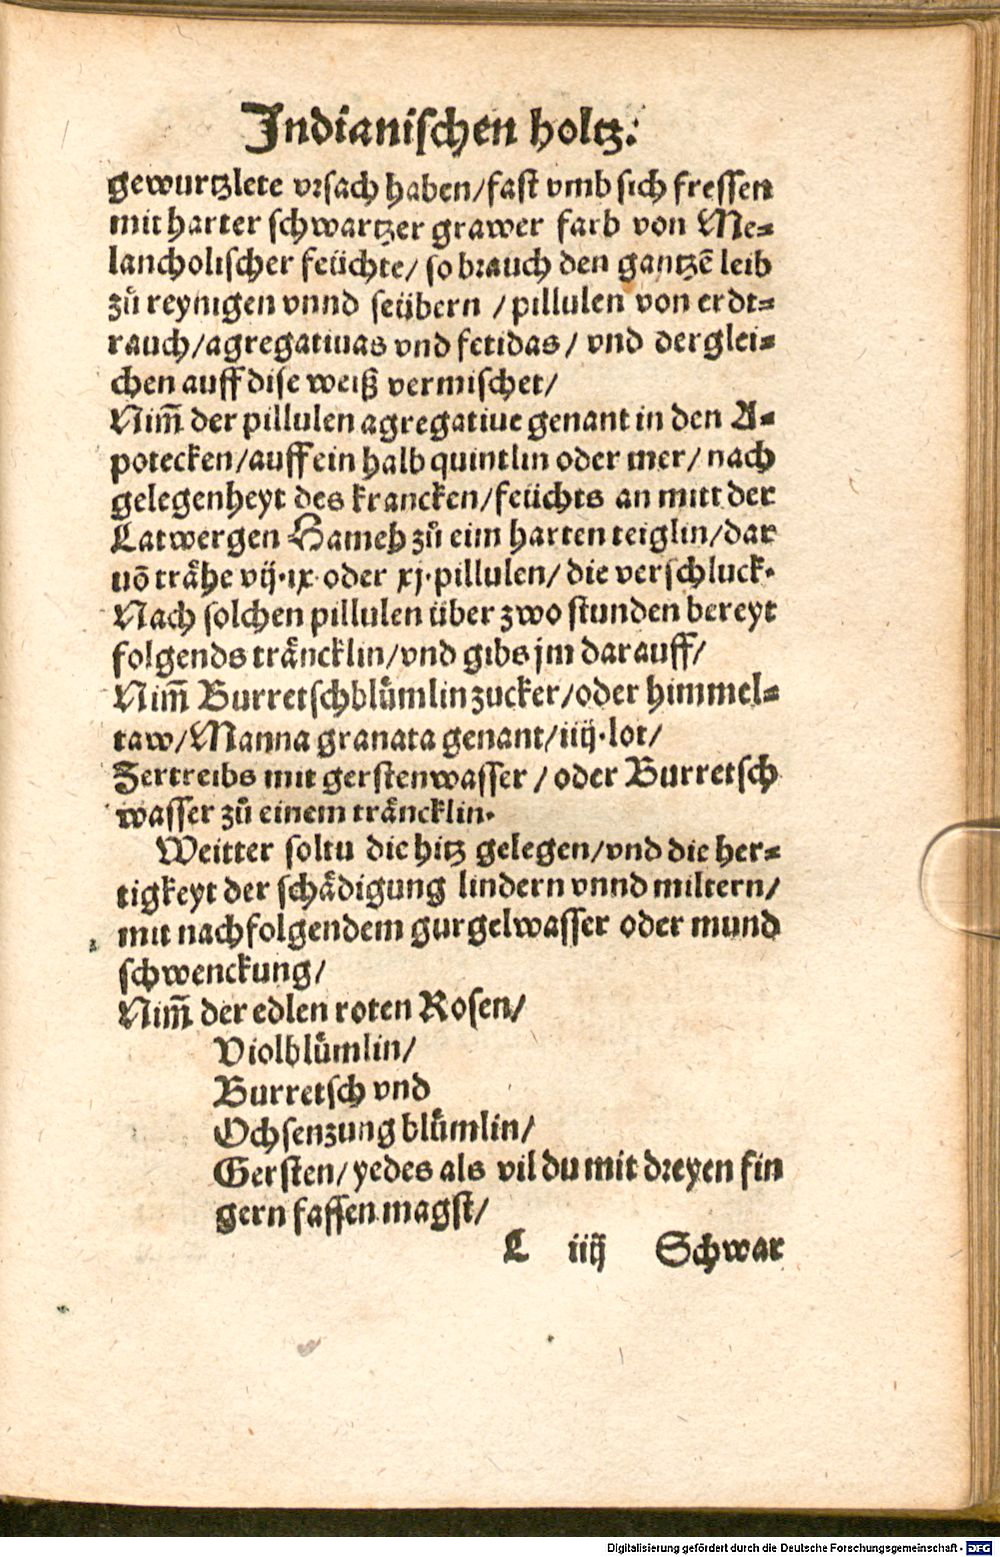 Jndianischen holtz.
gewurtzlete vrsach haben/fast vmb sich fressen
mit harter schwartzer grawer farb von Me-
lancholischer feüchte/ so brauch den gantzē leib
zů reynigen vnnd seübern / pillulen von erdt-
rauch/agregatiuas vnd fetidas/ vnd derglei-
chen auff dise weiß vermischet/
Nim̃ der pillulen agregatiue genant in den A-
potecken/auff ein halb quintlin oder mer/ nach
gelegenheyt des krancken/feüchts an mitt der
Latwergen Hameh zů eim harten teiglin/dar
uō trähe vij.ix. oder xj.pillulen/ die verschluck.
Nach solchen pillulen über zwo stunden bereyt
folgends träncklin/vnd gibs jm darauff/
Nim̃ Burretschblůmlin zucker/oder himmel-
taw/Manna granata genant/iiij.lot/
Zertreibs mit gerstenwasser / oder Burretsch
wasser zů einem träncklin.
Weitter soltu die hitz gelegen/vnd die her-
tigkeyt der schädigung lindern vnnd miltern/
mit nachfolgendem gurgelwasser oder mund
schwenckung/
Nim̃ der edlen roten Rosen/
Violblůmlin/
Burretsch vnd
Ochsenzung blůmlin/
Gersten/ yedes als vil du mit dreyen fin
gern fassen magst/
L iiij Schwar
Digitalisierung gefördert durch die Deutsche Forschungsgemeinschaft - DFG